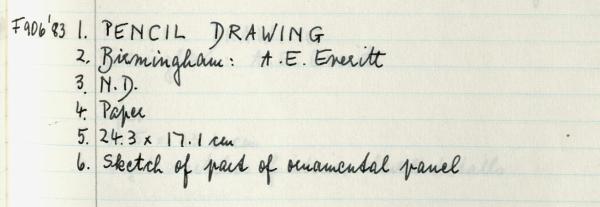 F906'83 1. PENCIL DRAWING
2. Birmingham: A.E. Everitt
3. N.D.
4. Paper
5. 24.3 x 17.1 cm
6. Sketch of part of ornamental panel